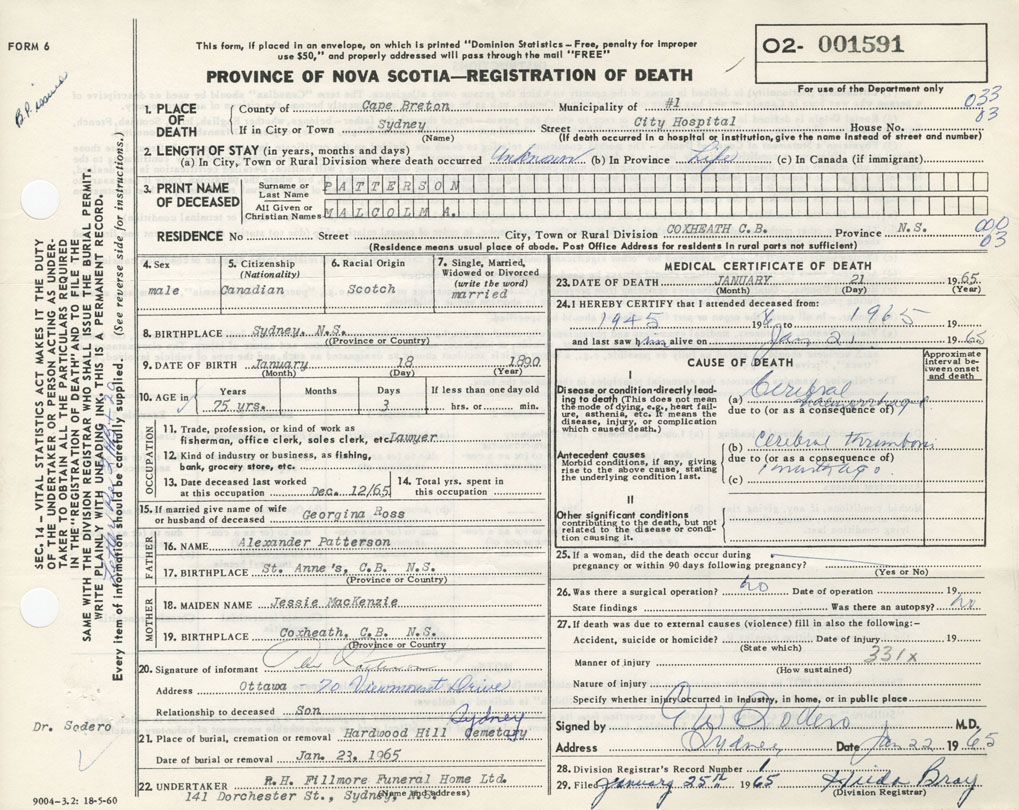 FORM 6
B.P. issued
This form, if placed in an envelope, on which is printed "Dominion Statistics – Free, penalty for improper
use $50," and properly addressed will pass through the mail "FREE"
O2- 001591
PROVINCE OF NOVA SCOTIA—REGISTRATION OF DEATH
For use of the Department only
1. PLACE OF DEATH
County of Cape Breton Municipality of #1
033
03
If in City or Town Sydney Street City Hospital House No.
(Name) (If death occurred in a hospital or institution, give the name instead of street and number)
2. LENGTH OF STAY (in years, months and days)
(a) In City, Town or Rural Division where death occurred Unknown (b) In Province Life (c) In Canada (if immigrant)
3. PRINT NAME OF DECEASED
Surname or Last Name PATTERSON
All Given or Christian Names MALCOLM A.
RESIDENCE No Street City, Town or Rural Division COXHEATH C.B. Province N.S.
000
03
(Residence means usual place of abode. Post Office Address for residents in rural parts not sufficient)
4. Sex male
5. Citizenship (Nationality) Canadian
6. Racial Origin Scotch
7. Single, Married, Widowed or Divorced (write the word) married
8. BIRTHPLACE Sydney, N.S.
(Province or Country)
9. DATE OF BIRTH January 18 1890
(Month) (Day) (Year)
10. AGE in Years Months Days If less than one day old
75 yrs. 3 hrs. or min.
OCCUPATION
11. Trade, profession, or kind of work as
fisherman, office clerk, sales clerk, etc. Lawyer
12. Kind of industry or business, as fishing,
bank, grocery store, etc.
13. Date deceased last worked
at this occupation Dec. 12/65
14. Total yrs. spent in
this occupation
15. If married give name of wife
or husband of deceased Georgina Ross
FATHER
16. NAME Alexander Patterson
17. BIRTHPLACE St. Anne's, C.B. N.S.
(Province or Country)
MOTHER
18. MAIDEN NAME Jessie MacKenzie
19. BIRTHPLACE Coxheath, C.B. N.S.
(Province or Country)
20. Signature of informant
Address Ottawa 70 Viewmount Drive
Relationship to deceased Son
21. Place of burial, cremation or removal Hardwood Hill Cemetary Sydney
Date of burial or removal Jan. 23, 1965
22. UNDERTAKER R.H. Fillmore Funeral Home Ltd.
141 Dorchester St., Sydney, N.S.
(Name and address)
MEDICAL CERTIFICATE OF DEATH
23. DATE OF DEATH JANUARY 21 1965
(Month) (Day) (Year)
24. I HEREBY CERTIFY that I attended deceased from:
1945 19 to 1965
and last saw him alive on Jan 21 1965
CAUSE OF DEATH
Approximate interval between onset and death
I
Disease or condition directly leading to death (This does not mean the mode of dying, e.g., heart failure, asthenia, etc. It means the disease, injury, or complication which caused death.)
(a) Cerebral haemorrhage
due to (or as a consequence of)
Antecedent causes
Morbid conditions, if any, giving rise to the above cause, stating the underlying condition last.
(b) Cerebral thrombosis
due to (or as a consequence of)
1 month ago
(c)
II
Other significant conditions
contributing to the death, but not related to the disease or condition causing it.
25. If a woman, did the death occur during
pregnancy or within 90 days following pregnancy?
(Yes or No)
26. Was there a surgical operation? no Date of operation 19
State findings Was there an autopsy? no
27. If death was due to external causes (violence) fill in also the following:–
Accident, suicide or homicide? Date of injury 19
(State which)
Manner of injury 331x
(How sustained)
Nature of injury
Specify whether injury occurred in industry, in home, or in public place
Signed by G W Sodero M.D.
Address Sydney Date Jan 22 1965
28. Division Registrar's Record Number 1
29. Filed January 25th 1965 Hilda Bray
(Division Registrar)
SEC. 14 – VITAL STATISTICS ACT MAKES IT THE DUTY
OF THE UNDERTAKER OR PERSON ACTING AS UNDER-
TAKER TO OBTAIN ALL THE PARTICULARS REQUIRED
IN THE "REGISTRATION OF DEATH" AND TO FILE THE
SAME WITH THE DIVISION REGISTRAR WHO SHALL ISSUE THE BURIAL PERMIT.
WRITE PLAINLY WITH UNFADING INK. THIS IS A PERMANENT RECORD.
Every item of information should be carefully supplied. (See reverse side for instructions.)
Dr. Sodero
9004-3.2: 18-5-60